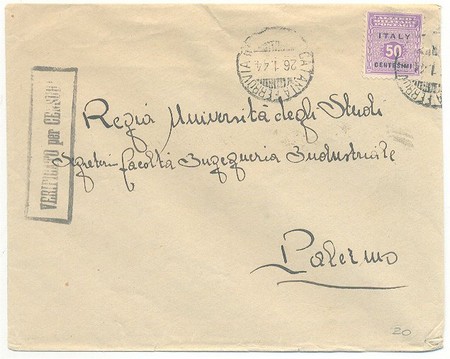 ITALY
50
CENTESIMI
CATANIA FERROVIA
26.1.44
VERIFICATO per CENSURA
Regia Università degli Studi
Segreteri facoltà Ingegneria Industriale
Palermo
20